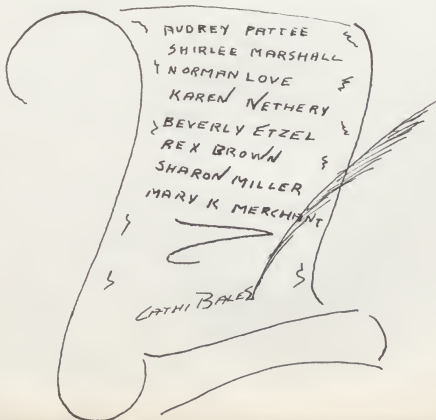 AUDREY PATTEE
SHIRLEE MARSHALL
NORMAN LOVE
KAREN NETHERY
BEVERLY ETZEL
REX BROWN
SHARON MILLER
MARY K MERCHANT
CATHI BALES